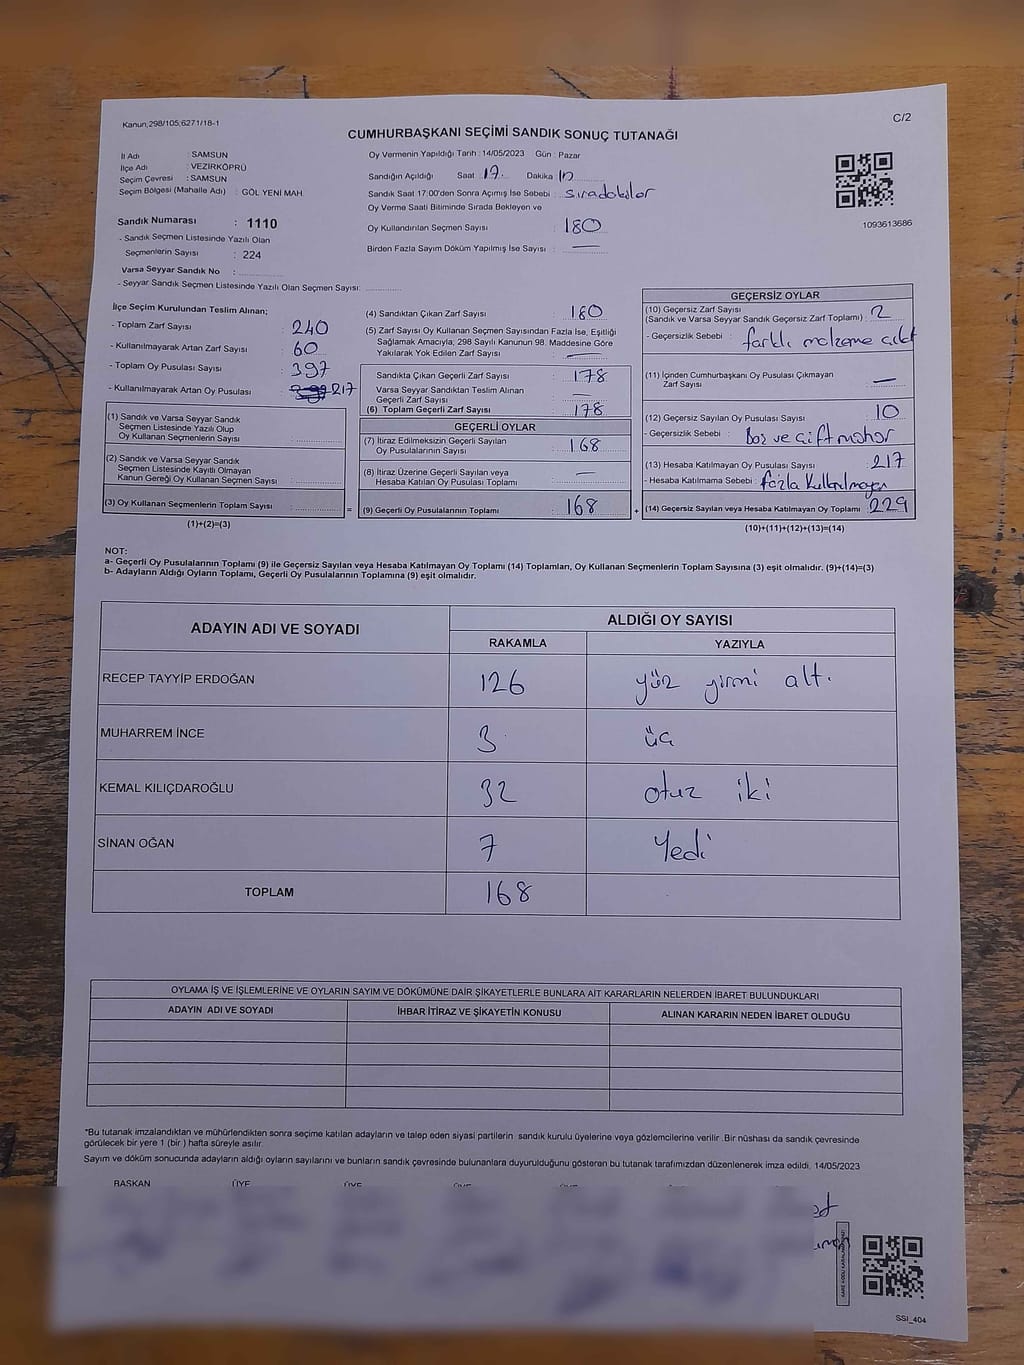 Kanun;298/105;6271/18-1
C/2
CUMHURBAŞKANI SEÇİMİ SANDIK SONUÇ TUTANAĞI
İl Adı : SAMSUN
İlçe Adı : VEZİRKÖPRÜ
Seçim Çevresi : SAMSUN
Seçim Bölgesi (Mahalle Adı) : GÖL YENİ MAH.
Sandık Numarası : 1110
- Sandık Seçmen Listesinde Yazılı Olan
Seçmenlerin Sayısı : 224
Varsa Seyyar Sandık No :
- Seyyar Sandık Seçmen Listesinde Yazılı Olan Seçmen Sayısı:
Oy Vermenin Yapıldığı Tarih : 14/05/2023 Gün : Pazar
Sandığın Açıldığı Saat 17. Dakika
Sandık Saat 17:00'den Sonra Açımış İse Sebebi :
Oy Verme Saati Bitiminde Sırada Bekleyen ve
Oy Kullandırılan Seçmen Sayısı : 180
Birden Fazla Sayım Döküm Yapılmış İse Sayısı : —
1093613686
İlçe Seçim Kurulundan Teslim Alınan;
- Toplam Zarf Sayısı : 240
- Kullanılmayarak Artan Zarf Sayısı : 60
- Toplam Oy Pusulası Sayısı : 397
- Kullanılmayarak Artan Oy Pusulası : 217
(1) Sandık ve Varsa Seyyar Sandık
Seçmen Listesinde Yazılı Olup
Oy Kullanan Seçmenlerin Sayısı :
(2) Sandık ve Varsa Seyyar Sandık
Seçmen Listesinde Kayıtlı Olmayan
Kanun Gereği Oy Kullanan Seçmen Sayısı :
(3) Oy Kullanan Seçmenlerin Toplam Sayısı : =
(1)+(2)=(3)
(4) Sandıktan Çıkan Zarf Sayısı : 180
(5) Zarf Sayısı Oy Kullanan Seçmen Sayısından Fazla İse, Eşitliği
Sağlamak Amacıyla; 298 Sayılı Kanunun 98. Maddesine Göre
Yakılarak Yok Edilen Zarf Sayısı : —
Sandıkta Çıkan Geçerli Zarf Sayısı : 178
Varsa Seyyar Sandıktan Teslim Alınan
Geçerli Zarf Sayısı : —
(6) Toplam Geçerli Zarf Sayısı : 178
GEÇERLİ OYLAR
(7) İtiraz Edilmeksizin Geçerli Sayılan
Oy Pusulalarının Sayısı : 168
(8) İtiraz Üzerine Geçerli Sayılan veya
Hesaba Katılan Oy Pusulası Toplamı : —
(9) Geçerli Oy Pusulalarının Toplamı : 168 +
GEÇERSİZ OYLAR
(10) Geçersiz Zarf Sayısı
(Sandık ve Varsa Seyyar Sandık Geçersiz Zarf Toplamı) : 2
- Geçersizlik Sebebi : farklı malzeme çıktı
(11) İçinden Cumhurbaşkanı Oy Pusulası Çıkmayan
Zarf Sayısı : —
(12) Geçersiz Sayılan Oy Pusulası Sayısı : 10
- Geçersizlik Sebebi : Boş ve çift mühür
(13) Hesaba Katılmayan Oy Pusulası Sayısı : 217
- Hesaba Katılmama Sebebi : fazla kullanılmayan
(14) Geçersiz Sayılan veya Hesaba Katılmayan Oy Toplamı : 229
(10)+(11)+(12)+(13)=(14)
NOT:
a- Geçerli Oy Pusulalarının Toplamı (9) ile Geçersiz Sayılan veya Hesaba Katılmayan Oy Toplamı (14) Toplamları, Oy Kullanan Seçmenlerin Toplam Sayısına (3) eşit olmalıdır. (9)+(14)=(3)
b- Adayların Aldığı Oyların Toplamı, Geçerli Oy Pusulalarının Toplamına (9) eşit olmalıdır.
ADAYIN ADI VE SOYADI
ALDIĞI OY SAYISI
RAKAMLA YAZIYLA
RECEP TAYYİP ERDOĞAN 126 yüz yirmi alt.
MUHARREM İNCE 3 üç
KEMAL KILIÇDAROĞLU 32 otuz iki
SİNAN OĞAN 7 Yedi
TOPLAM 168
OYLAMA İŞ VE İŞLEMLERİNE VE OYLARIN SAYIM VE DÖKÜMÜNE DAİR ŞİKAYETLERLE BUNLARA AİT KARARLARIN NELERDEN İBARET BULUNDUKLARI
ADAYIN ADI VE SOYADI İHBAR İTİRAZ VE ŞİKAYETİN KONUSU ALINAN KARARIN NEDEN İBARET OLDUĞU
*Bu tutanak imzalandıktan ve mühürlendikten sonra seçime katılan adayların ve talep eden siyasi partilerin sandık kurulu üyelerine veya gözlemcilerine verilir .Bir nüshası da sandık çevresinde
görülecek bir yere 1 (bir ) hafta süreyle asılır.
Sayım ve döküm sonucunda adayların aldığı oyların sayılarını ve bunların sandık çevresinde bulunanlara duyurulduğunu gösteren bu tutanak tarafımızdan düzenlenerek imza edildi. 14/05/2023
BAŞKAN ÜYE ÜYE ÜYE ÜYE
SSI_404